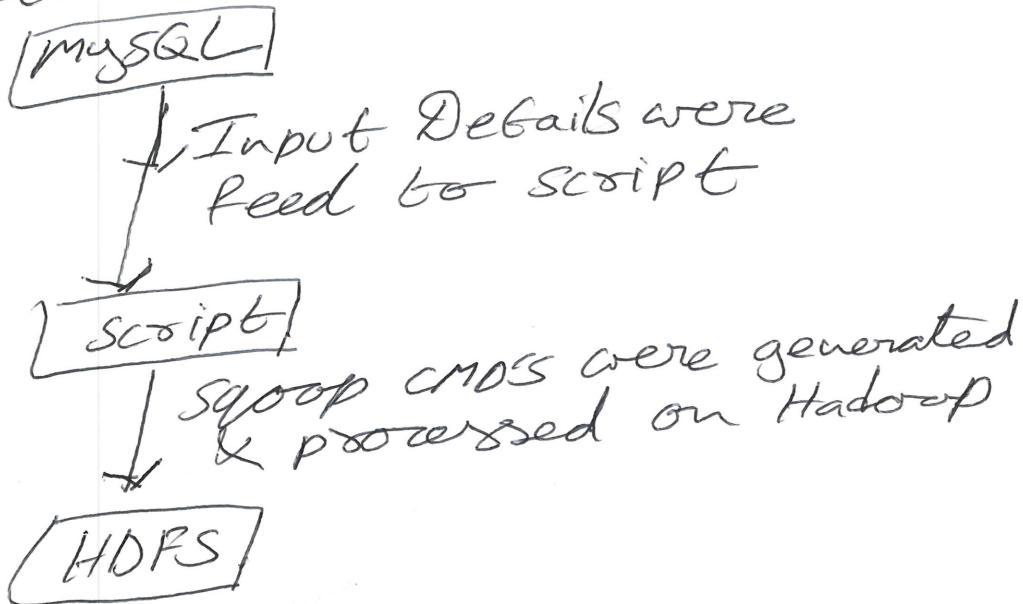 MySQL
Input Details were
feed to script
script
sqoop CMD'S were generated
& processed on Hadoop
HDFS